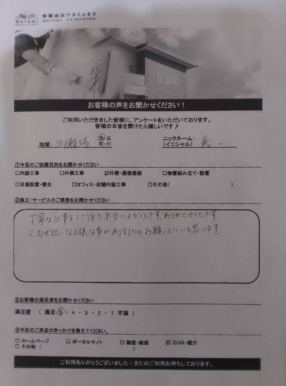 お客様の声をお聞かせください！
ご利用いただきました皆様に、アンケートをいただいております。
皆様の本音を聞けたら嬉しいです♪
地域
ニックネーム：
(イニシャル)
①今回のご依頼目的をお聞かせください
□内装工事 □外構工事 ☑外壁・屋根塗装 □物置組み立て・設置
□足場設置・撤去 □オフィス・店舗内装工事 □その他( )
②施工・サービスのご感想をお聞かせください
丁寧な仕事をして頂き本当によかったです。ありがとうございました
又お世話になる様な事がありましたらお願いしたいと思います。
③お客様の満足度をお聞かせください
満足度 ( 満足 5 ・ 4 ・ 3 ・ 2 ・ 1 不満 )
④今回のご来店のきっかけを教えてください。
□ ホームページ □ ポータルサイト □ 雑誌・紙面 ☑ 口コミ・紹介
□ その他 ( )
ご利用ありがとうございました！またのご利用お待ちしております。